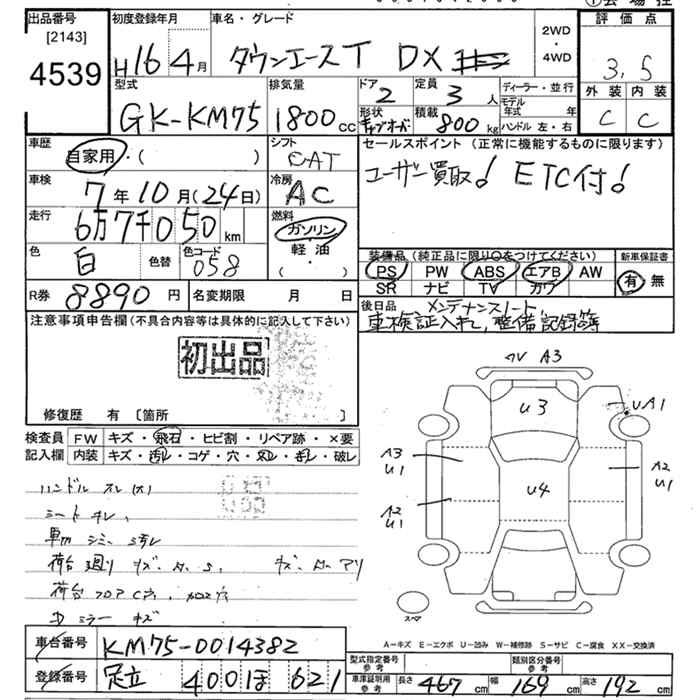 出品番号 初度登録年月 車名・グレード 評価点
[2143]
4539
H16年4月 タウンエースT DX 2WD・4WD 3.5
型式 排気量 ドア 定員 ディーラー・並行 外装 内装
GK-KM75 1800cc 2 3人 モデル年式 年 C C
形状 積載 800kg ハンドル 左・右
車歴 シフト セールスポイント (正常に機能するものに限ります)
自家用・( ) CAT ユーザー買取! ETC付!
車検 冷房
7年10月(24日) AC
走行 燃料
6万7千050km ガソリン・軽油・( )
色 色替 色コード 装備品 (純正品に限り〇をつけてください) 新車保証書
白 058 PS PW ABS エアB AW 有・無
SR ナビ TV カワ
R券 8890円 名変期限 月 日
後日品 メンテナンスノート
車検証入れ,整備記録等
注意事項申告欄 (不具合内容等は具体的に記入して下さい)
初出品
修復歴 有 〔箇所 〕
検査員 FW キズ・飛石・ヒビ割・リペア跡・×要
記入欄 内装 キズ・コゲ・穴・破レ
ハンドル スレ(大)
シートヨレ,
荷台廻り キズ
荷台フロア
ドミラー キズ
A3
U3
UA1
A3
U1
A2
U1
U4
A2
U1
スペア
A-キズ E-エクボ U-凹み W-補修跡 S-サビ C-腐食 XX-交換済
車台番号 KM75-0014382
型式指定番号 参考 類別区分番号 参考
登録番号 足立 400ほ621
車庫証明用 参考 長さ 467cm 幅 169cm 高さ 192cm